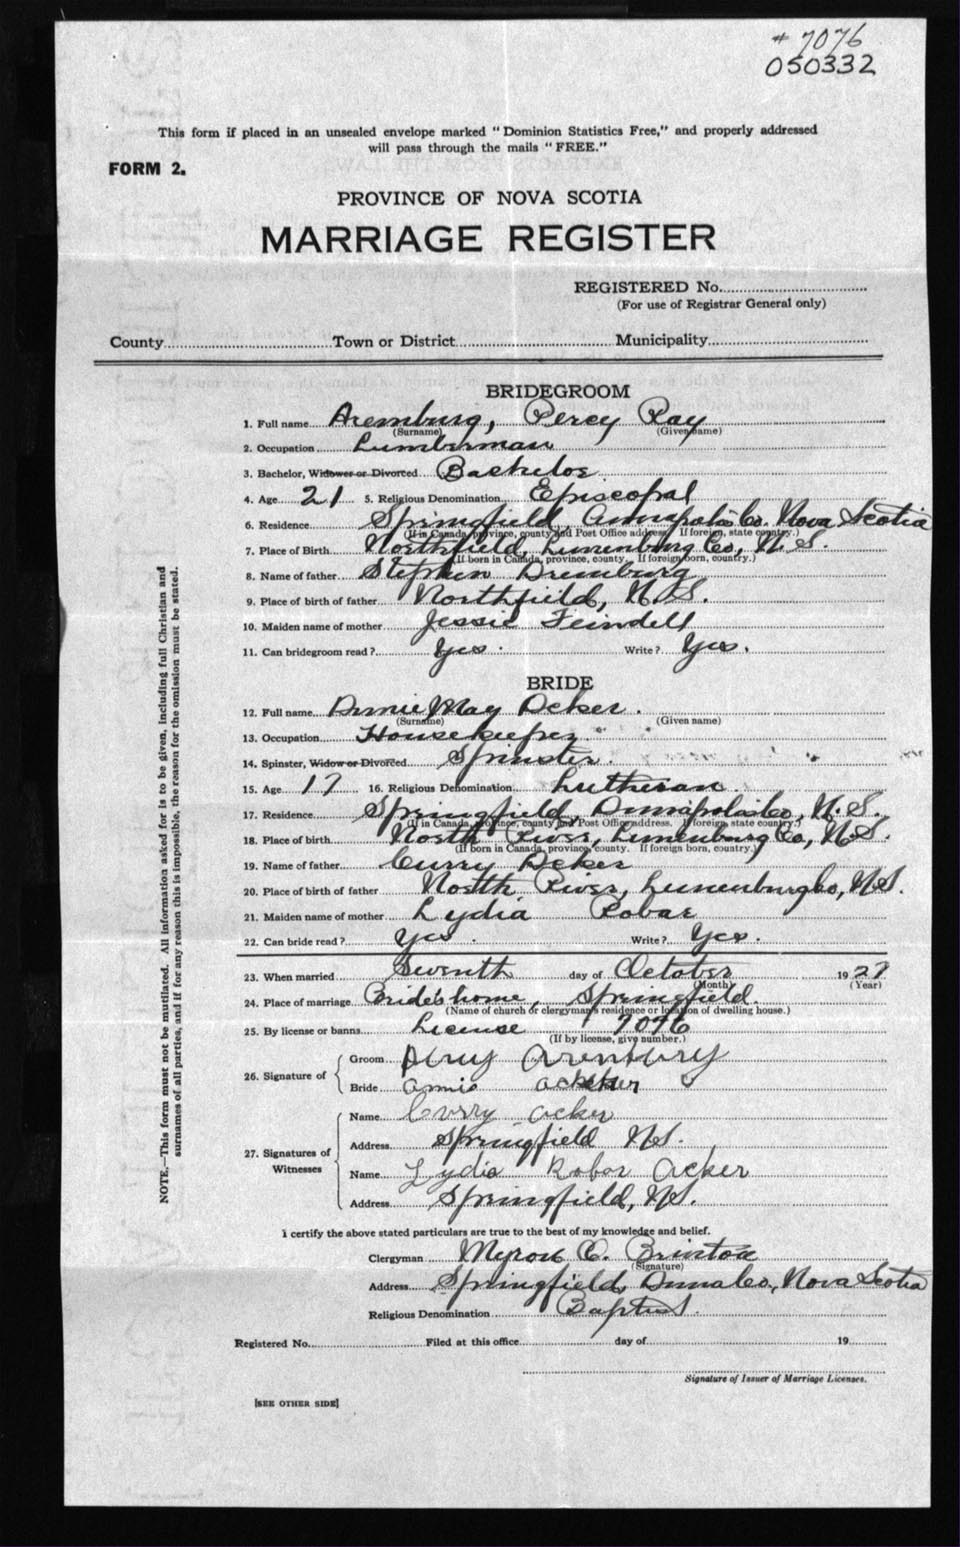 # 7076
050332
This form if placed in an unsealed envelope marked "Dominion Statistics Free," and properly addressed
will pass through the mails "FREE."
FORM 2.
PROVINCE OF NOVA SCOTIA
MARRIAGE REGISTER
REGISTERED No.
(For use of Registrar General only)
County Town or District Municipality
BRIDEGROOM
1. Full name Aremburg, Percy Ray
(Surname) (Given name)
2. Occupation Lumberman
3. Bachelor, Widower or Divorced Bachelor
4. Age 21 5. Religious Denomination Episcopal
6. Residence Springfield, Annapolis Co. Nova Scotia
(If in Canada, province, county and Post Office address. If foreign, state country.)
7. Place of Birth Northfield, Lunenburg Co, N.S.
(If born in Canada, province, county. If foreign born, country.)
8. Name of father Stephen Aremburg
9. Place of birth of father Northfield, N.S.
10. Maiden name of mother Jessie Feindell
11. Can bridegroom read? Yes. Write? Yes.
BRIDE
12. Full name Annie May Acker.
(Surname) (Given name)
13. Occupation Housekeeper
14. Spinster, Widow or Divorced Spinster.
15. Age 17 16. Religious Denomination Lutheran.
17. Residence Springfield, Annapolis Co, N.S.
(If in Canada, province, county and Post Office address. If foreign, state country.)
18. Place of birth North River, Lunenburg Co, N.S.
(If born in Canada, province, county. If foreign born, country.)
19. Name of father Curry Acker
20. Place of birth of father North River, Lunenburg Co, N.S.
21. Maiden name of mother Lydia Robar
22. Can bride read? Yes. Write? Yes.
23. When married Seventh day of October 1927
(Month) (Year)
24. Place of marriage Bride's home, Springfield.
(Name of church or clergyman's residence or location of dwelling house.)
25. By license or banns License 7076
(If by license, give number.)
26. Signature of
Groom Percy Arenburg
Bride Annie Acker
27. Signatures of Witnesses
Name Curry Acker
Address Springfield N.S.
Name Lydia Robar Acker
Address Springfield, N.S.
I certify the above stated particulars are true to the best of my knowledge and belief.
Clergyman Myron O. Brinton
(Signature)
Address Springfield, Anna Co, Nova Scotia
Religious Denomination Baptist.
Registered No. Filed at this office day of 19
Signature of Issuer of Marriage Licenses.
[SEE OTHER SIDE]
NOTE.—This form must not be mutilated. All information asked for is to be given, including full Christian and
surnames of all parties, and if for any reason this is impossible, the reason for the omission must be stated.